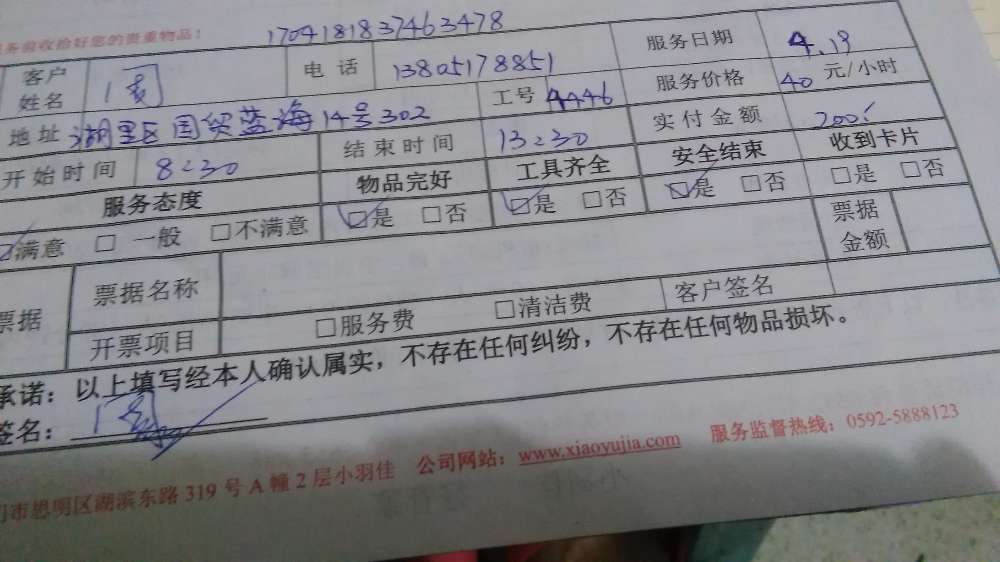 务前收拾好您的贵重物品！ 1704181837463478
客户姓名 电话 13805178851 服务日期 4.19
地址 湖里区国贸蓝海14号302 工号 4446 服务价格 40 元/小时
开始时间 8:30 结束时间 13:30 实付金额 200
服务态度 物品完好 工具齐全 安全结束 收到卡片
满意 □ 一般 □不满意 □是 □否 □是 □否 □是 □否 □是 □否
票据 票据名称 票据金额
开票项目 □服务费 □清洁费 客户签名
承诺：以上填写经本人确认属实，不存在任何纠纷，不存在任何物品损坏。
签名：
门市思明区湖滨东路 319 号 A 幢 2 层小羽佳 公司网站：www.xiaoyujia.com 服务监督热线：0592-5888123